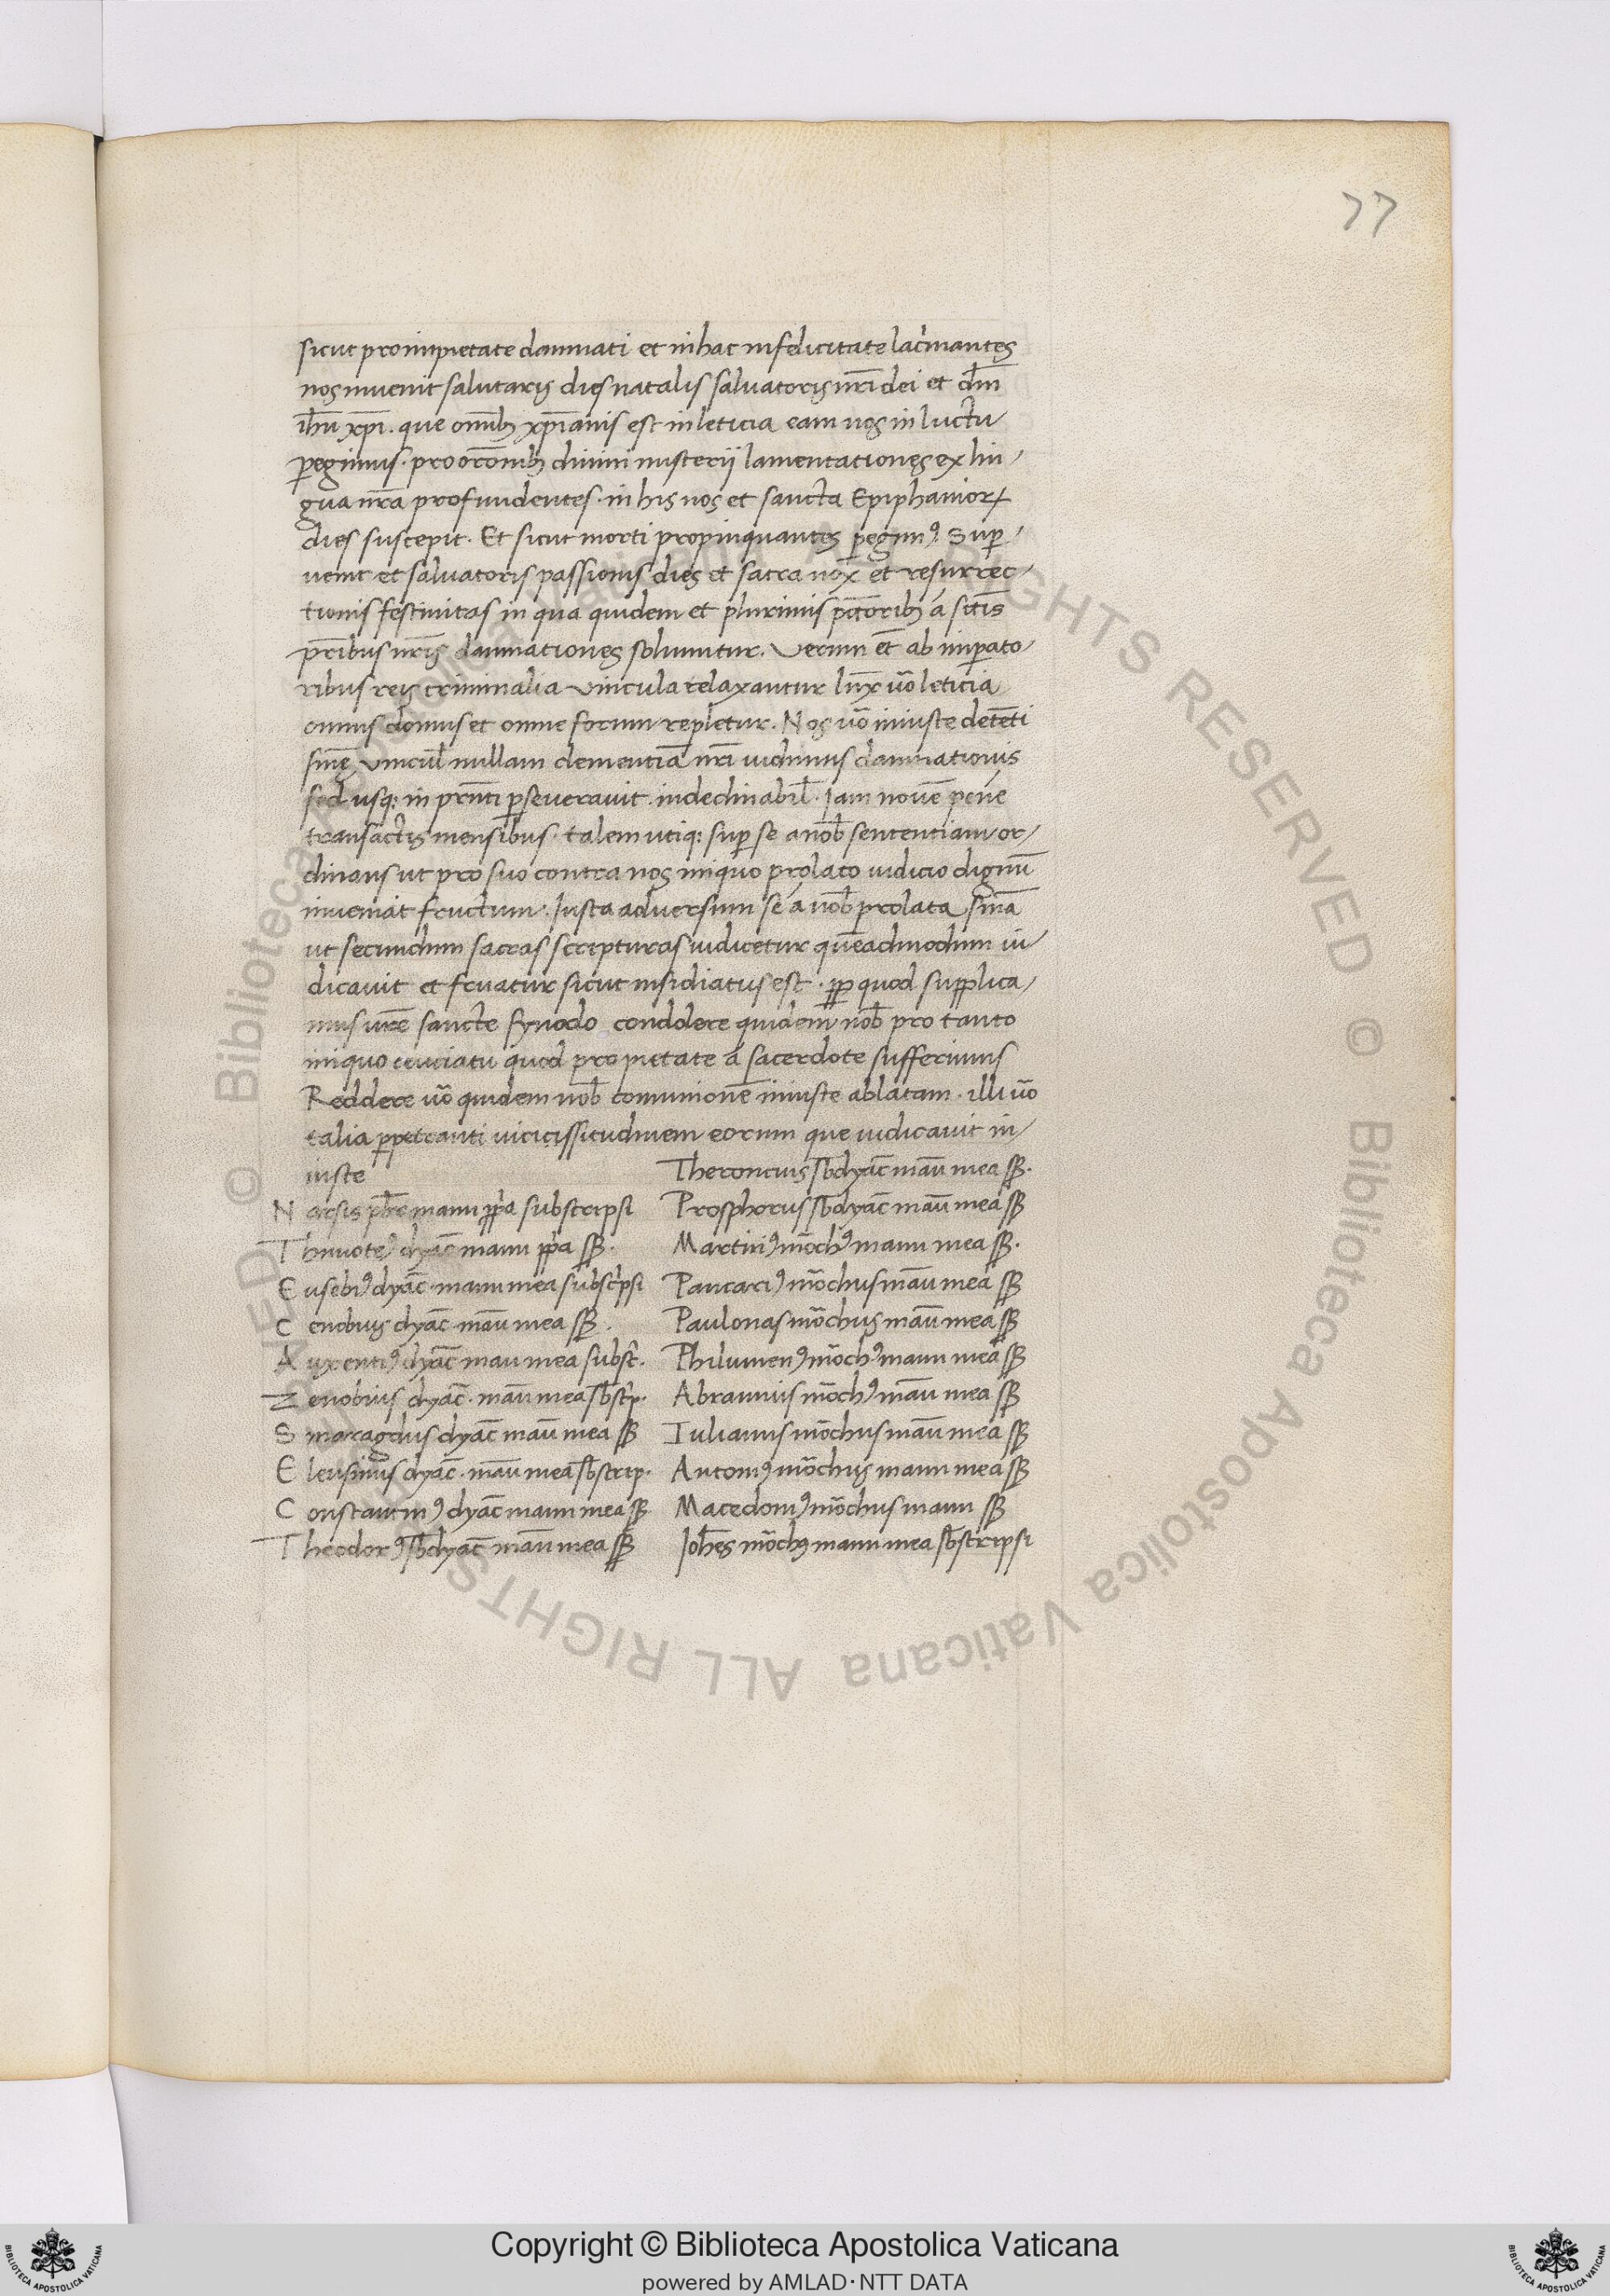 77
sicut pro inpietate damnati et in hac infelicitate lac̃mantes
nos invenit salutaris dies natalis salvatoris nr̃i dei et dñi
ih̃u xp̃i. que omĩb; xp̃ianis est in leticia eam nos in luctu
ꝑegimus. pro or̃onib; divini misterii lamentationes ex lin-
gua nr̃a profundentes. in his nos et sancta Epiphanioꝝ
dies suscepit. Et sicut morti propinquantes ꝑegimꝰ. Suꝑ-
venit et salvatoris passionis dies et sacra nox et resurrec-
tionis festivitas in qua quidem et plurimis pcc̃toribus a sc̃tis
pr̃ibus nr̃is damnationes solvuntur. Verum et̃ ab inꝑato-
ribus reis criminalia vincula relaxantur ũo leticia
omnis domus et omne forum repletur. Nos ũo iniuste detẽti
sine vincul̃ nullam clementiã nr̃i vidimus damnationis
sed usq; in pr̃nti ꝑseveravit indeclinabil̃. Iam novẽ pene
transactis mensibus. talem utiq; suꝑ se a nob̃ sententiam or-
dinans ut pro suo contra nos iniquo prolato iudicio dignũ
inveniat fructum. Iusta adversum se a nob̃ prolata sñia
ut secundum sacras scripturas iudicetur quẽadmodum iu-
dicavit et feratur sicut insidiatus est. ꝓp quod supplica-
mus vr̃e sancte synodo condolere quidem nob̃ pro tanto
iniquo cruciatu quod pro pietate a sacerdote sufferimus
Reddere ũo quidem nob̃ comunionẽ iniuste ablatam. illi ũo
talia ꝑpetranti vicicissitudinem eorum que iudicavit in-
iuste
Narsis pb̃r manu ꝓpa subscripsi
Thimoteꝰ dyac̃ manu ꝓpa ss̃.
Eusebiꝰ dyac̃ manu mea subscrip̃si
Cenobius dyac̃ manũ mea ss̃.
Auxentiꝰ dyac̃ manu mea subsc̃.
Zenobius dyac̃. manũ mea sb̃scrip.
Smaragdus dyac̃ manũ mea ss̃
Eleusinus dyac̃. manũ mea sb̃scrip.
Constantinꝰ dyac̃ manu mea ss̃
Theodorꝰ sb̃dyac̃ manũ mea ss̃
Theroncius sb̃dyac̃ manũ mea ss̃.
Prosphorus sb̃dyac̃ manũ mea ss̃
Martiriꝰ mõchꝰ manu mea ss̃.
Pancariꝰ mõchus manũ mea ss̃
Paulonas mõchus manũ mea ss̃
Philumenꝰ mõchꝰ manu mea ss̃
Abramius mõchꝰ manũ mea ss̃
Iulianus mõchus manũ mea ss̃
Antoniꝰ mõchus manu mea ss̃
Macedoniꝰ mõchus manu ss̃
Joh̃es mõchꝰ manu mea sb̃scripsi
© Biblioteca Apostolica Vaticana ALL RIGHTS RESERVED © Biblioteca Apostolica Vaticana ALL RIGHTS RESERVED
Copyright © Biblioteca Apostolica Vaticana
powered by AMLAD·NTT DATA
BIBLIOTECA APOSTOLICA VATICANA
BIBLIOTECA APOSTOLICA VATICANA